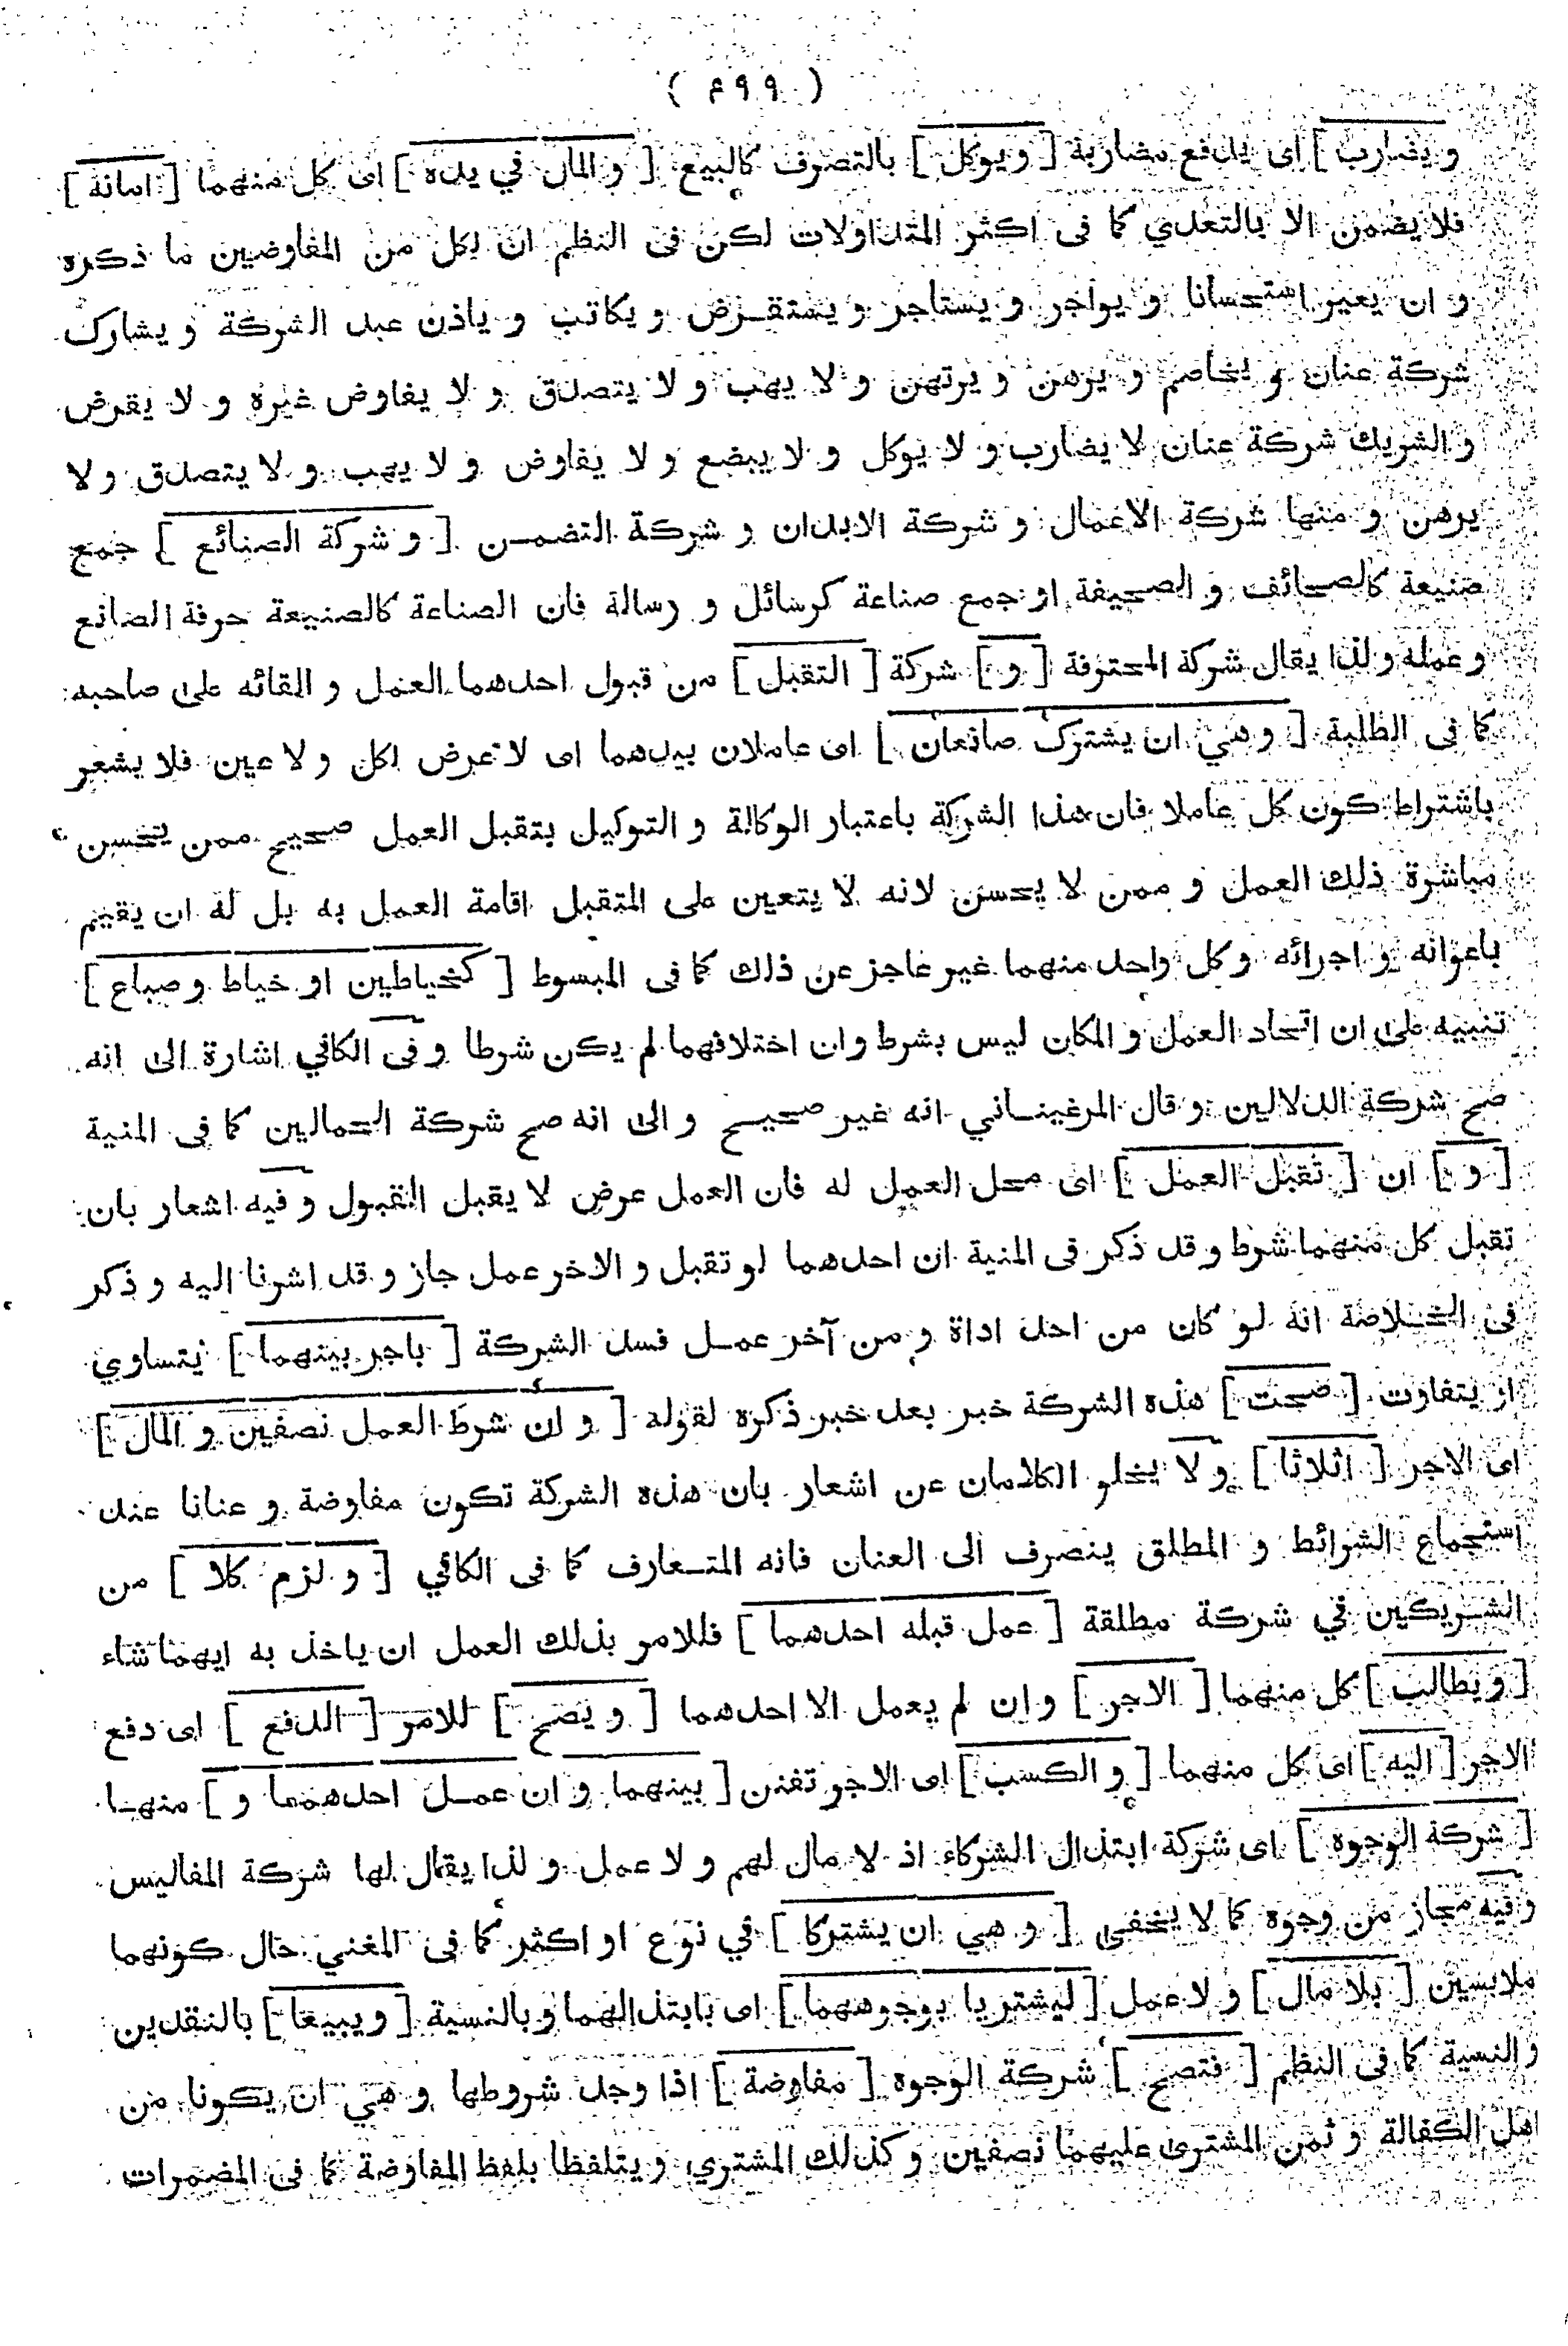 ( ٤٩٩ )
و يضارب ] اى يدفع مضاربة [ و يوكل ] بالتصرف كالبيع [ و المال في يده ] اى كل منهما [ امانة ]
فلا يضمن الا بالتعدي كما فى اكثر المتداولات لكن فى النظم ان لكل من المفاوضين ما ذكره
و ان يعير استحسانا و يواجر و يستاجر و يستقـرض و يكاتب و ياذن عبد الشركة و يشارك
شركة عنان و يخاصم و يرهن و يرتهن و لا يهب و لا يتصدق و لا يفاوض غيره و لا يقرض
و الشريك شركة عنان لا يضارب و لا يوكل و لا يبضع و لا يفاوض و لا يهب و لا يتصدق و لا
يرهن و منها شركة الاعمال و شركة الابدان و شركة التضمـن [ و شركة الصنائع ] جمع
صنيعة كالصحائف و الصحيفة او جمع صناعة كرسائل و رسالة فان الصناعة كالصنيعة حرفة الصانع
و عمله و لذا يقال شركة المحترفة [ و ] شركة [ التقبل ] من قبول احدهما العمل و القائه على صاحبه
كما فى الطلبة [ و هي ان يشترك صانعان ] اى عاملان بيدهما اى لا عرض لكل و لا عين فلا يشعر
باشتراط كون كل عاملا فان هذا الشركة باعتبار الوكالة و التوكيل بتقبل العمل صحيح ممن يحسن
مباشرة ذلك العمل و ممن لا يحسن لانه لا يتعين على المتقبل اقامة العمل به بل له ان يقيم
باعوانه و اجرائه و كل واحد منهما غير عاجز عن ذلك كما فى المبسوط [ كخياطين او خياط و صباغ ]
تنبيه على ان اتحاد العمل و المكان ليس بشرط و ان اختلافهما لم يكن شرطا و فى الكافي اشارة الى انه
صح شركة الدلالين و قال المرغينـاني انه غير صحيـح و الى انه صح شركة الحمالين كما فى المنية
[ و ] ان [ تقبل العمل ] اى محل العمل له فان العمل عرض لا يقبل القبول و فيه اشعار بان
تقبل كل منهما شرط و قد ذكر فى المنية ان احدهما لو تقبل و الاخر عمل جاز و قد اشرنا اليه و ذكر
فى الخـلاصة انه لـو كان من احد اداة و من آخر عمـل فسد الشركة [ باجر بينهما ] يتساوي
او يتفاوت [ صحت ] هذه الشركة خبر بعد خبر ذكره لقوله [ و ان شرط العمل نصفين و المال ]
اى الاجر [ اثلاثا ] و لا يخلو الكلامان عن اشعار بان هذه الشركة تكون مفاوضة و عنانا عند
استجماع الشرائط و المطلق ينصرف الى العنان فانه المتـعارف كما فى الكافي [ و لزم كلا ] من
الشـريكين في شركة مطلقة [ عمل قبله احدهما ] فللامر بذلك العمل ان ياخذ به ايهما شاء
[ و يطالب ] كل منهما [ الاجر ] و ان لم يعمل الا احدهما [ و يصح ] للامر [ الدفع ] اى دفع
الاجر [ اليه ] اى كل منهما [ و الكسب ] اى الاجر [ بينهما و ان عمـل احدهما و ] منهـا
[ شركة الوجوه ] اى شركة ابتذال الشركاء اذ لا مال لهم و لا عمل و لذا يقال لها شركة المفاليس
و فيه مجاز من وجوه كما لا يخفى [ و هي ان يشتركا ] في نوع او اكثر كما فى المغني حال كونهما
ملابسين [ بلا مال ] و لا عمل [ ليشتريا بوجوههما ] اى بابتذالهما و بالنسية [ و يبيعا ] بالنقدين
و النسية كما فى النظم [ فتصح ] شركة الوجوه [ مفاوضة ] اذا وجد شروطها و هي ان يكونا من
اهل الكفالة و ثمن المشترى عليهما نصفين و كذلك المشتري و يتلفظا بلفظ المفاوضة كما فى المضمرات